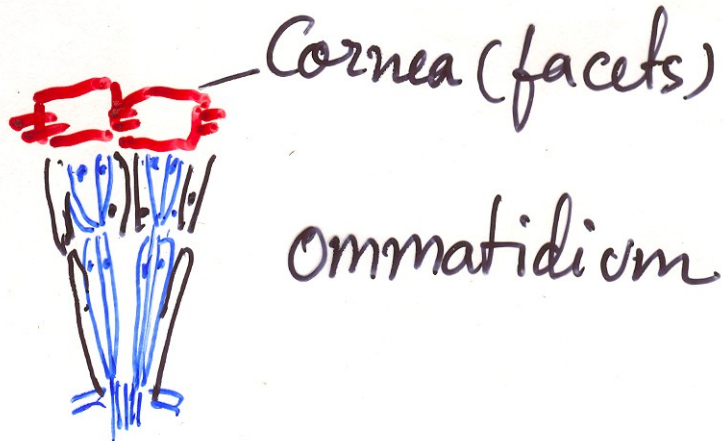 Cornea (facets)
ommatidium